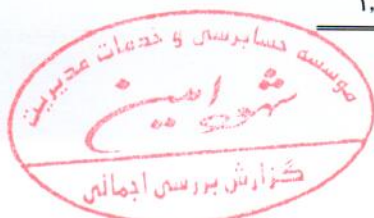 ۱,
موسسه حسابرسی و خدمات مدیریت
شهود امین
گزارش بررسی اجمالی